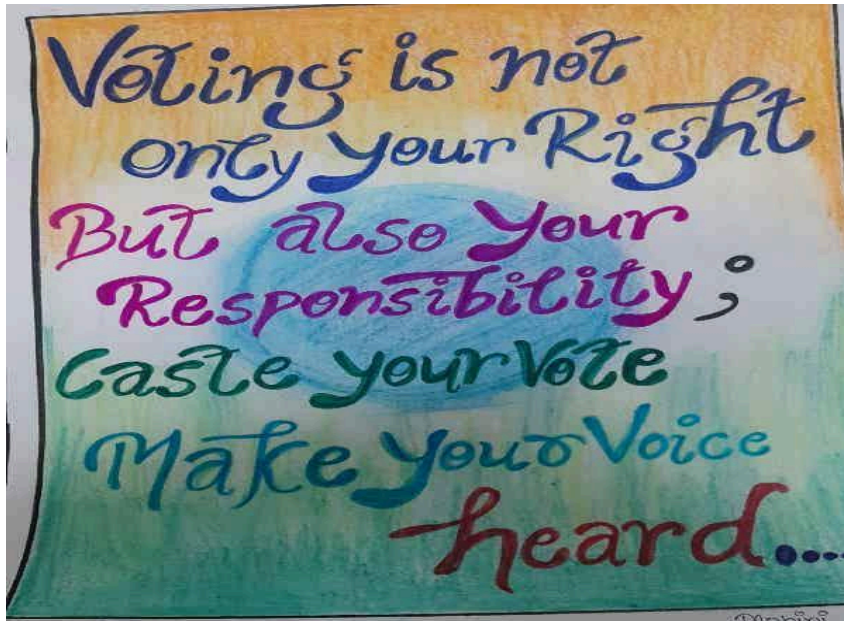 Voting is not
only your Right
But also your
Responsibility;
Caste your Vote
Make your Voice
heard....